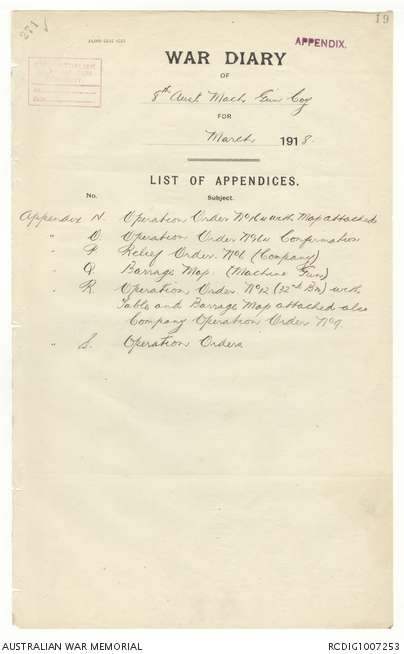 271 ✓
19
APPENDIX.
WAR DIARY
OF
8th Aust. Mach. Gun Coy
FOR
March 1918.
LIST OF APPENDICES.
No. Subject.
Appendix N. Operation Order No 164 with Map attached
" O. Operation Order No 164 Confirmation
" P. Relief Order No 6 (Company)
" Q. Barrage Map (Machine Gun)
" R. Operation Order No 12 (32nd Bn) with
Table and Barrage Map attached also
Company Operation Order No 9.
" S. Operation Orders
AUSTRALIAN WAR MEMORIAL
RCDIG1007253